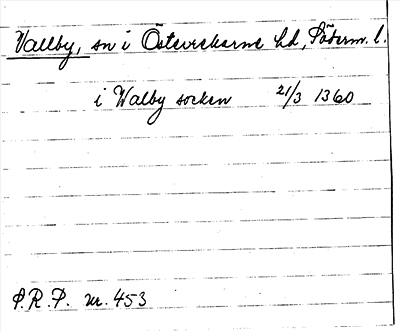 Vallby, sn i Österrekarne hd, Söderm. l.
i Walby socken 21/3 1360
S.R.P. nr. 453